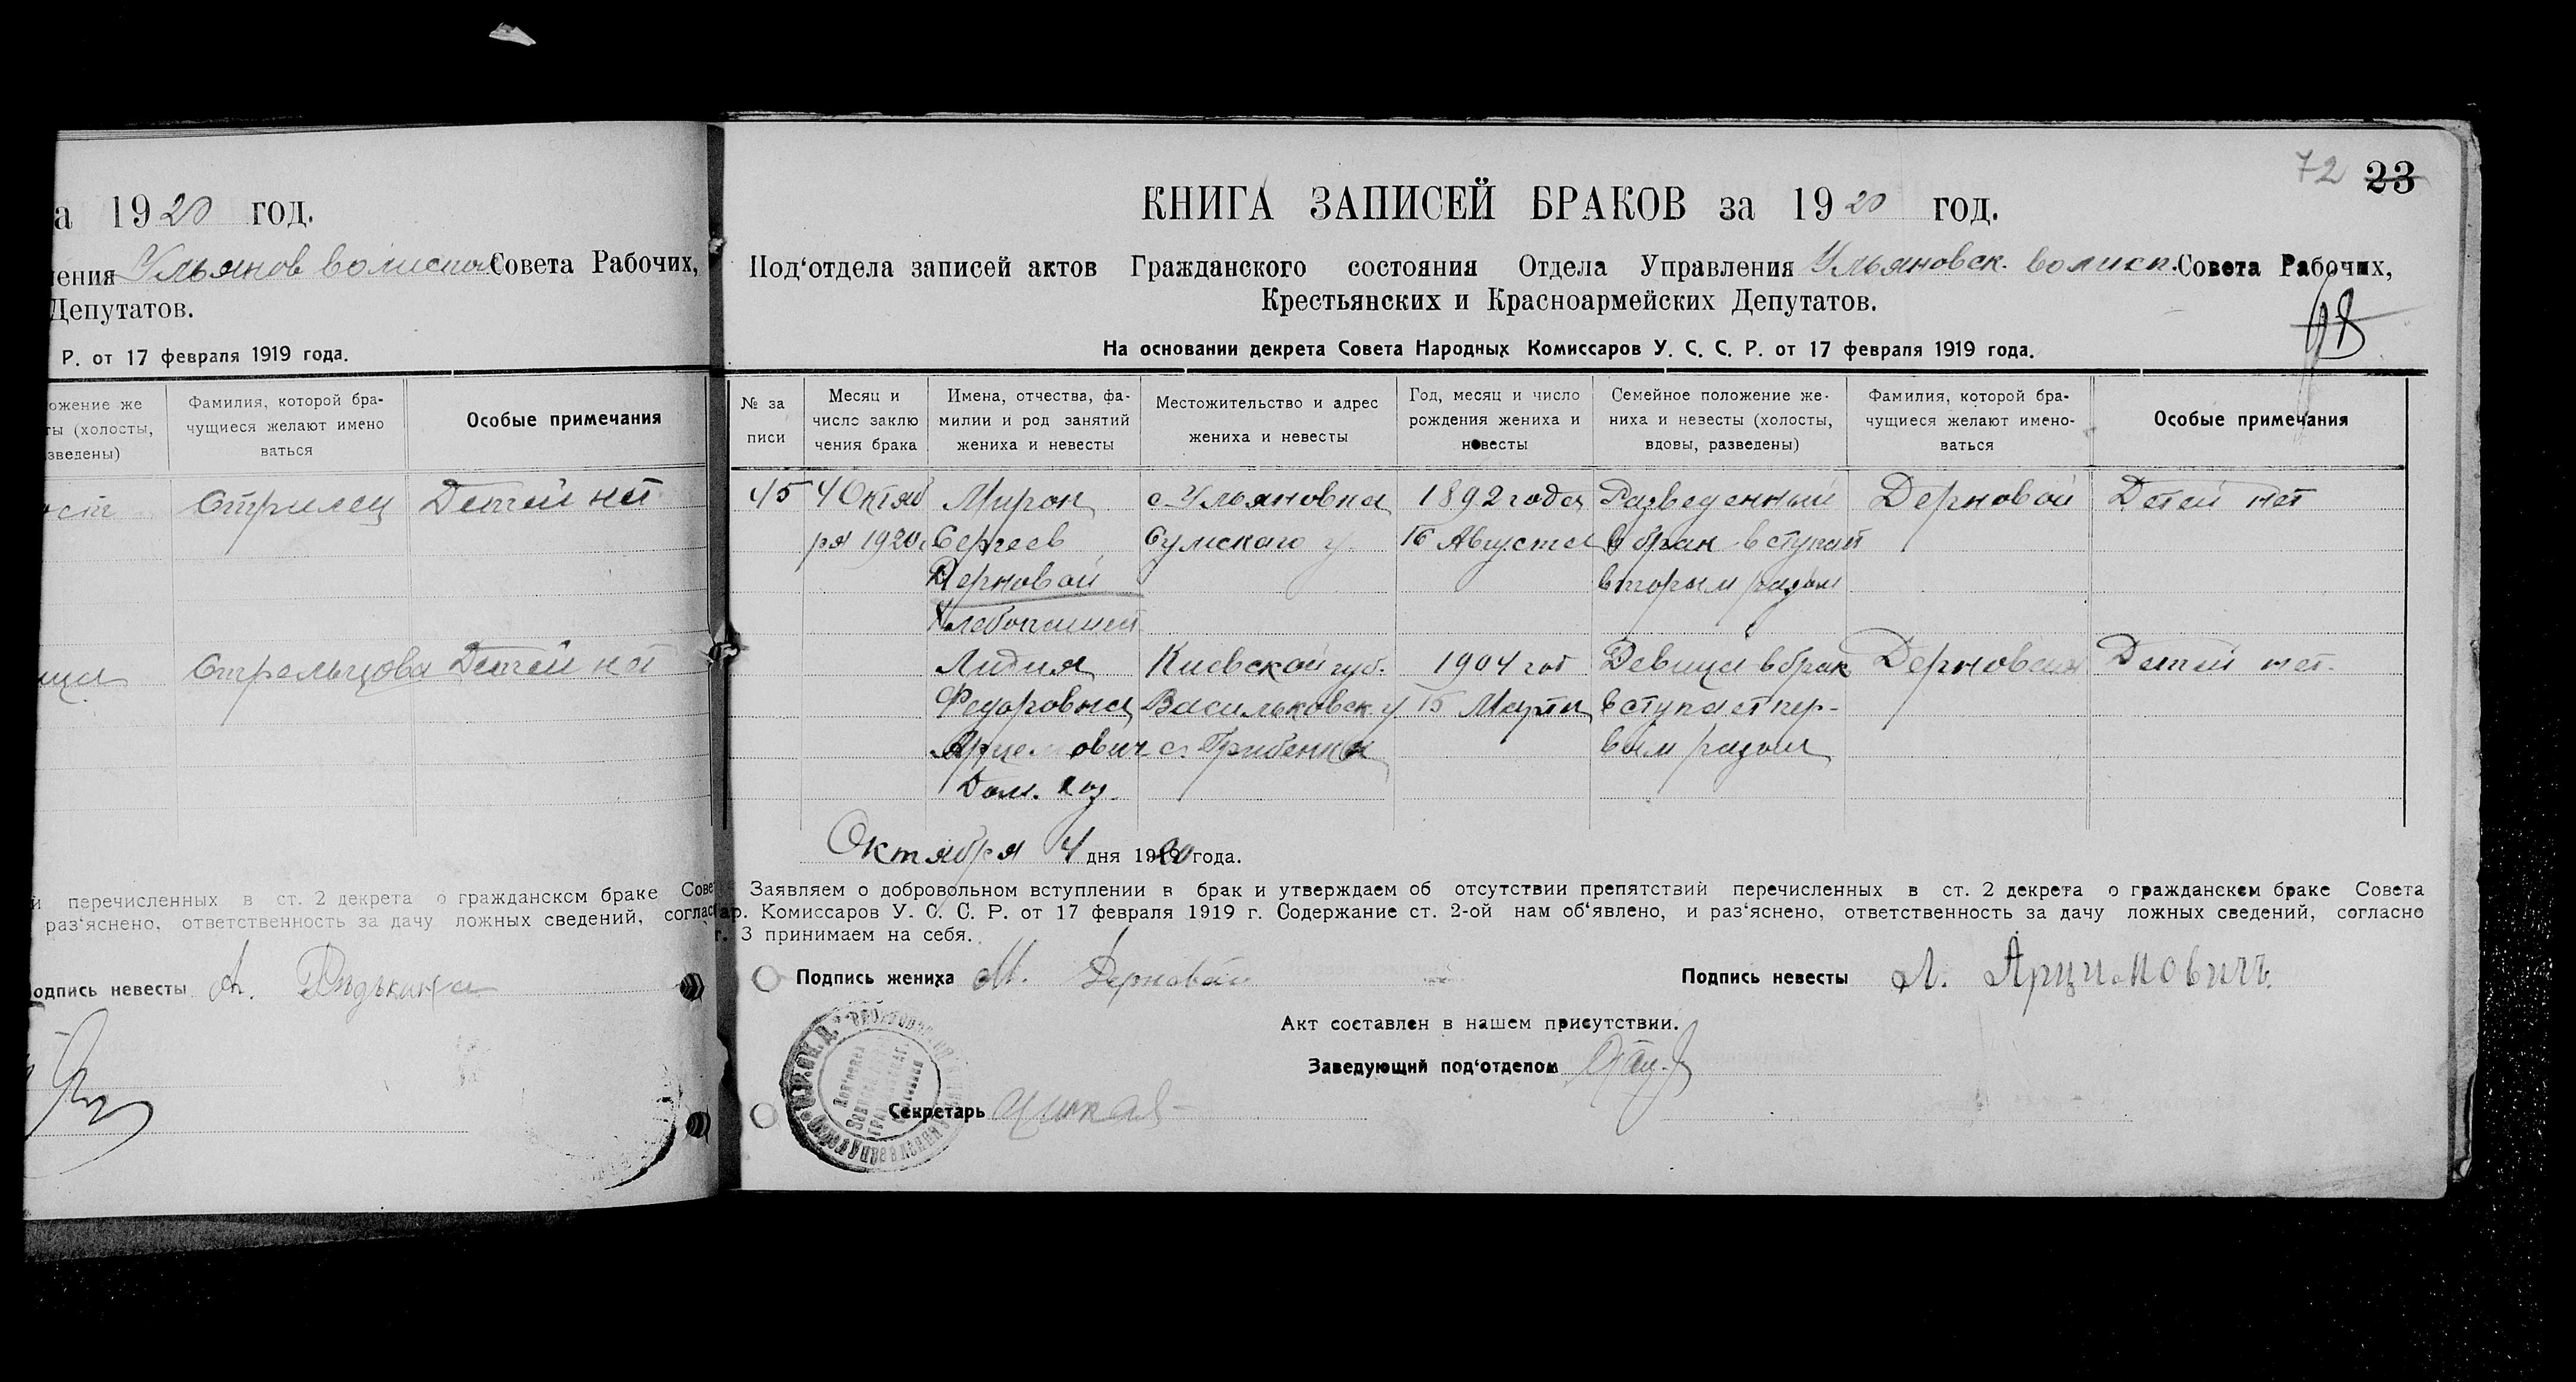 а 1920 год.
ления Ульянов волиспол Совета Рабочих,
Депутатов.
Р. от 17 февраля 1919 года.
ожение же
ты (холосты,
зведены)
Фамилия, которой бра-
чущиеся желают имено
ваться
Особые примечания
ост Стрилец Детей нет
ица Стрельцова Детей нет
й перечисленных в ст. 2 декрета о гражданском браке Сове
раз‘яснено, ответственность за дачу ложных сведений, соглас
одпись невесты А.
72 23
КНИГА ЗАПИСЕЙ БРАКОВ за 1920 год.
Под‘отдела записей актов Гражданского состояния Отдела Управления Ульяновск. волисп. Совета Рабочих,
Крестьянских и Красноармейских Депутатов.
98
На основании декрета Совета Народных Комиссаров У. С. С. Р. от 17 февраля 1919 года.
№ за
писи
Месяц и
число заклю
чения брака
Имена, отчества, фа-
милии и род занятий
жениха и невесты
Местожительство и адрес
жениха и невесты
Год, месяц и число
рождения жениха и
невесты
Семейное положение же-
ниха и невесты (холосты,
вдовы, разведены)
Фамилия, которой бра-
чущиеся желают имено-
ваться
Особые примечания
45 4 Октяб Мирон с. Ульяновка 1892 года Разведенный Дерновой Детей нет
ря 1920г. Сергеев Сумскаго у. 16 Августа в брак вступает
Дерновой вторым разом
Хлебопашец
Лидия Киевской губ. 1904 год Девица в брак Дерновая Детей нет.
Федоровна Васильковск. у. 15 Марта вступает пер-
Арцимович с. Гребенки вым разом
Дом. хоз.
Октября 4 дня 1920 года.
Заявляем о добровольном вступлении в брак и утверждаем об отсутствии препятствий перечисленных в ст. 2 декрета о гражданском браке Совета
ар. Комиссаров У. С. С. Р. от 17 февраля 1919 г. Содержание ст. 2-ой нам об‘явлено, и раз‘яснено, ответственность за дачу ложных сведений, согласно
г. 3 принимаем на себя.
Подпись жениха М. Дерновой Подпись невесты Л. Арцимовичъ.
Акт составлен в нашем присутствии.
Заведующий под‘отделом
Секретарь